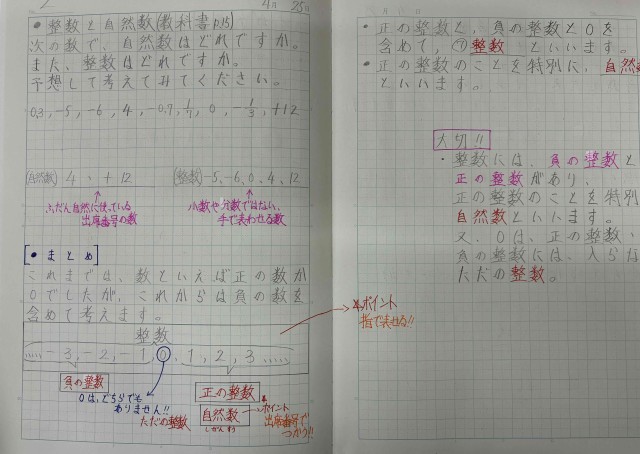 4月 25日
• 整数と自然数(教科書p.15)
次の数で、自然数はどれですか。
また、整数はどれですか。
予想して考えてみてください。
0.3, -5, -6, 4, -0.7, 1/7, 0, -1/3, +12
(自然数) 4、+12
(整数) -5, -6, 0, 4, 12
ふだん自然に使っている
出席番号の数
小数や分数ではない、
手で表わせる数
• まとめ
これまでは、数といえば正の数か
0でしたが、これからは負の数を
含めて考えます。
整数
…… -3, -2, -1, 0, 1, 2, 3 ……
負の整数
0は、どちらでも
ありません!!
ただの整数
正の整数
自然数
しぜんすう
ポイント
出席番号で
つかう!!
ポイント
指で表せる!!
• 正の整数と、負の整数と0を
含めて、整数 といいます。
• 正の整数のことを特別に、自然
といいます。
大切!!
・整数には、負の整数と
正の整数があり、
正の整数のことを特別
自然数といいます。
又、0は、正の整数、
負の整数には、入らな
ただの整数。